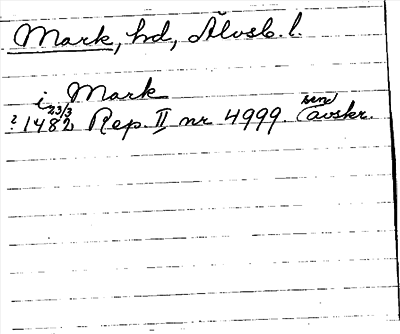 Mark, hd, Älvsb. l.
i Mark
? 1482 23/3 Rep. II nr 4999. send avskr.